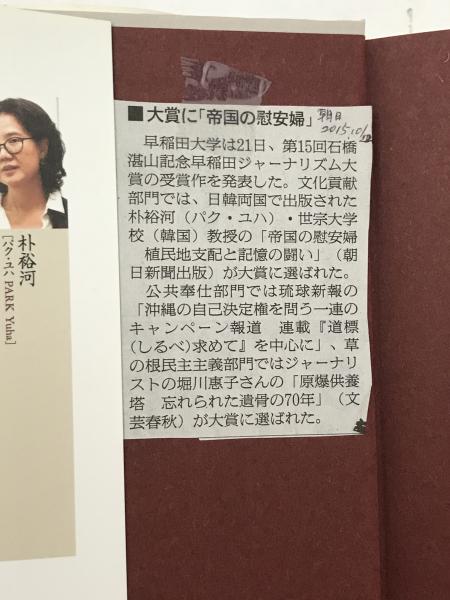 ■大賞に「帝国の慰安婦」
朝日
2015.10/
早稲田大学は21日、第15回石橋
湛山記念早稲田ジャーナリズム大
賞の受賞作を発表した。文化貢献
部門では、日韓両国で出版された
朴裕河（パク・ユハ）・世宗大学
校（韓国）教授の「帝国の慰安婦
植民地支配と記憶の闘い」（朝
日新聞出版）が大賞に選ばれた。
公共奉仕部門では琉球新報の
「沖縄の自己決定権を問う一連の
キャンペーン報道　連載『道標
（しるべ）求めて』を中心に」、草
の根民主主義部門ではジャーナリ
ストの堀川惠子さんの「原爆供養
塔　忘れられた遺骨の70年」（文
芸春秋）が大賞に選ばれた。
朴裕河
［パク・ユハ PARK Yuha］